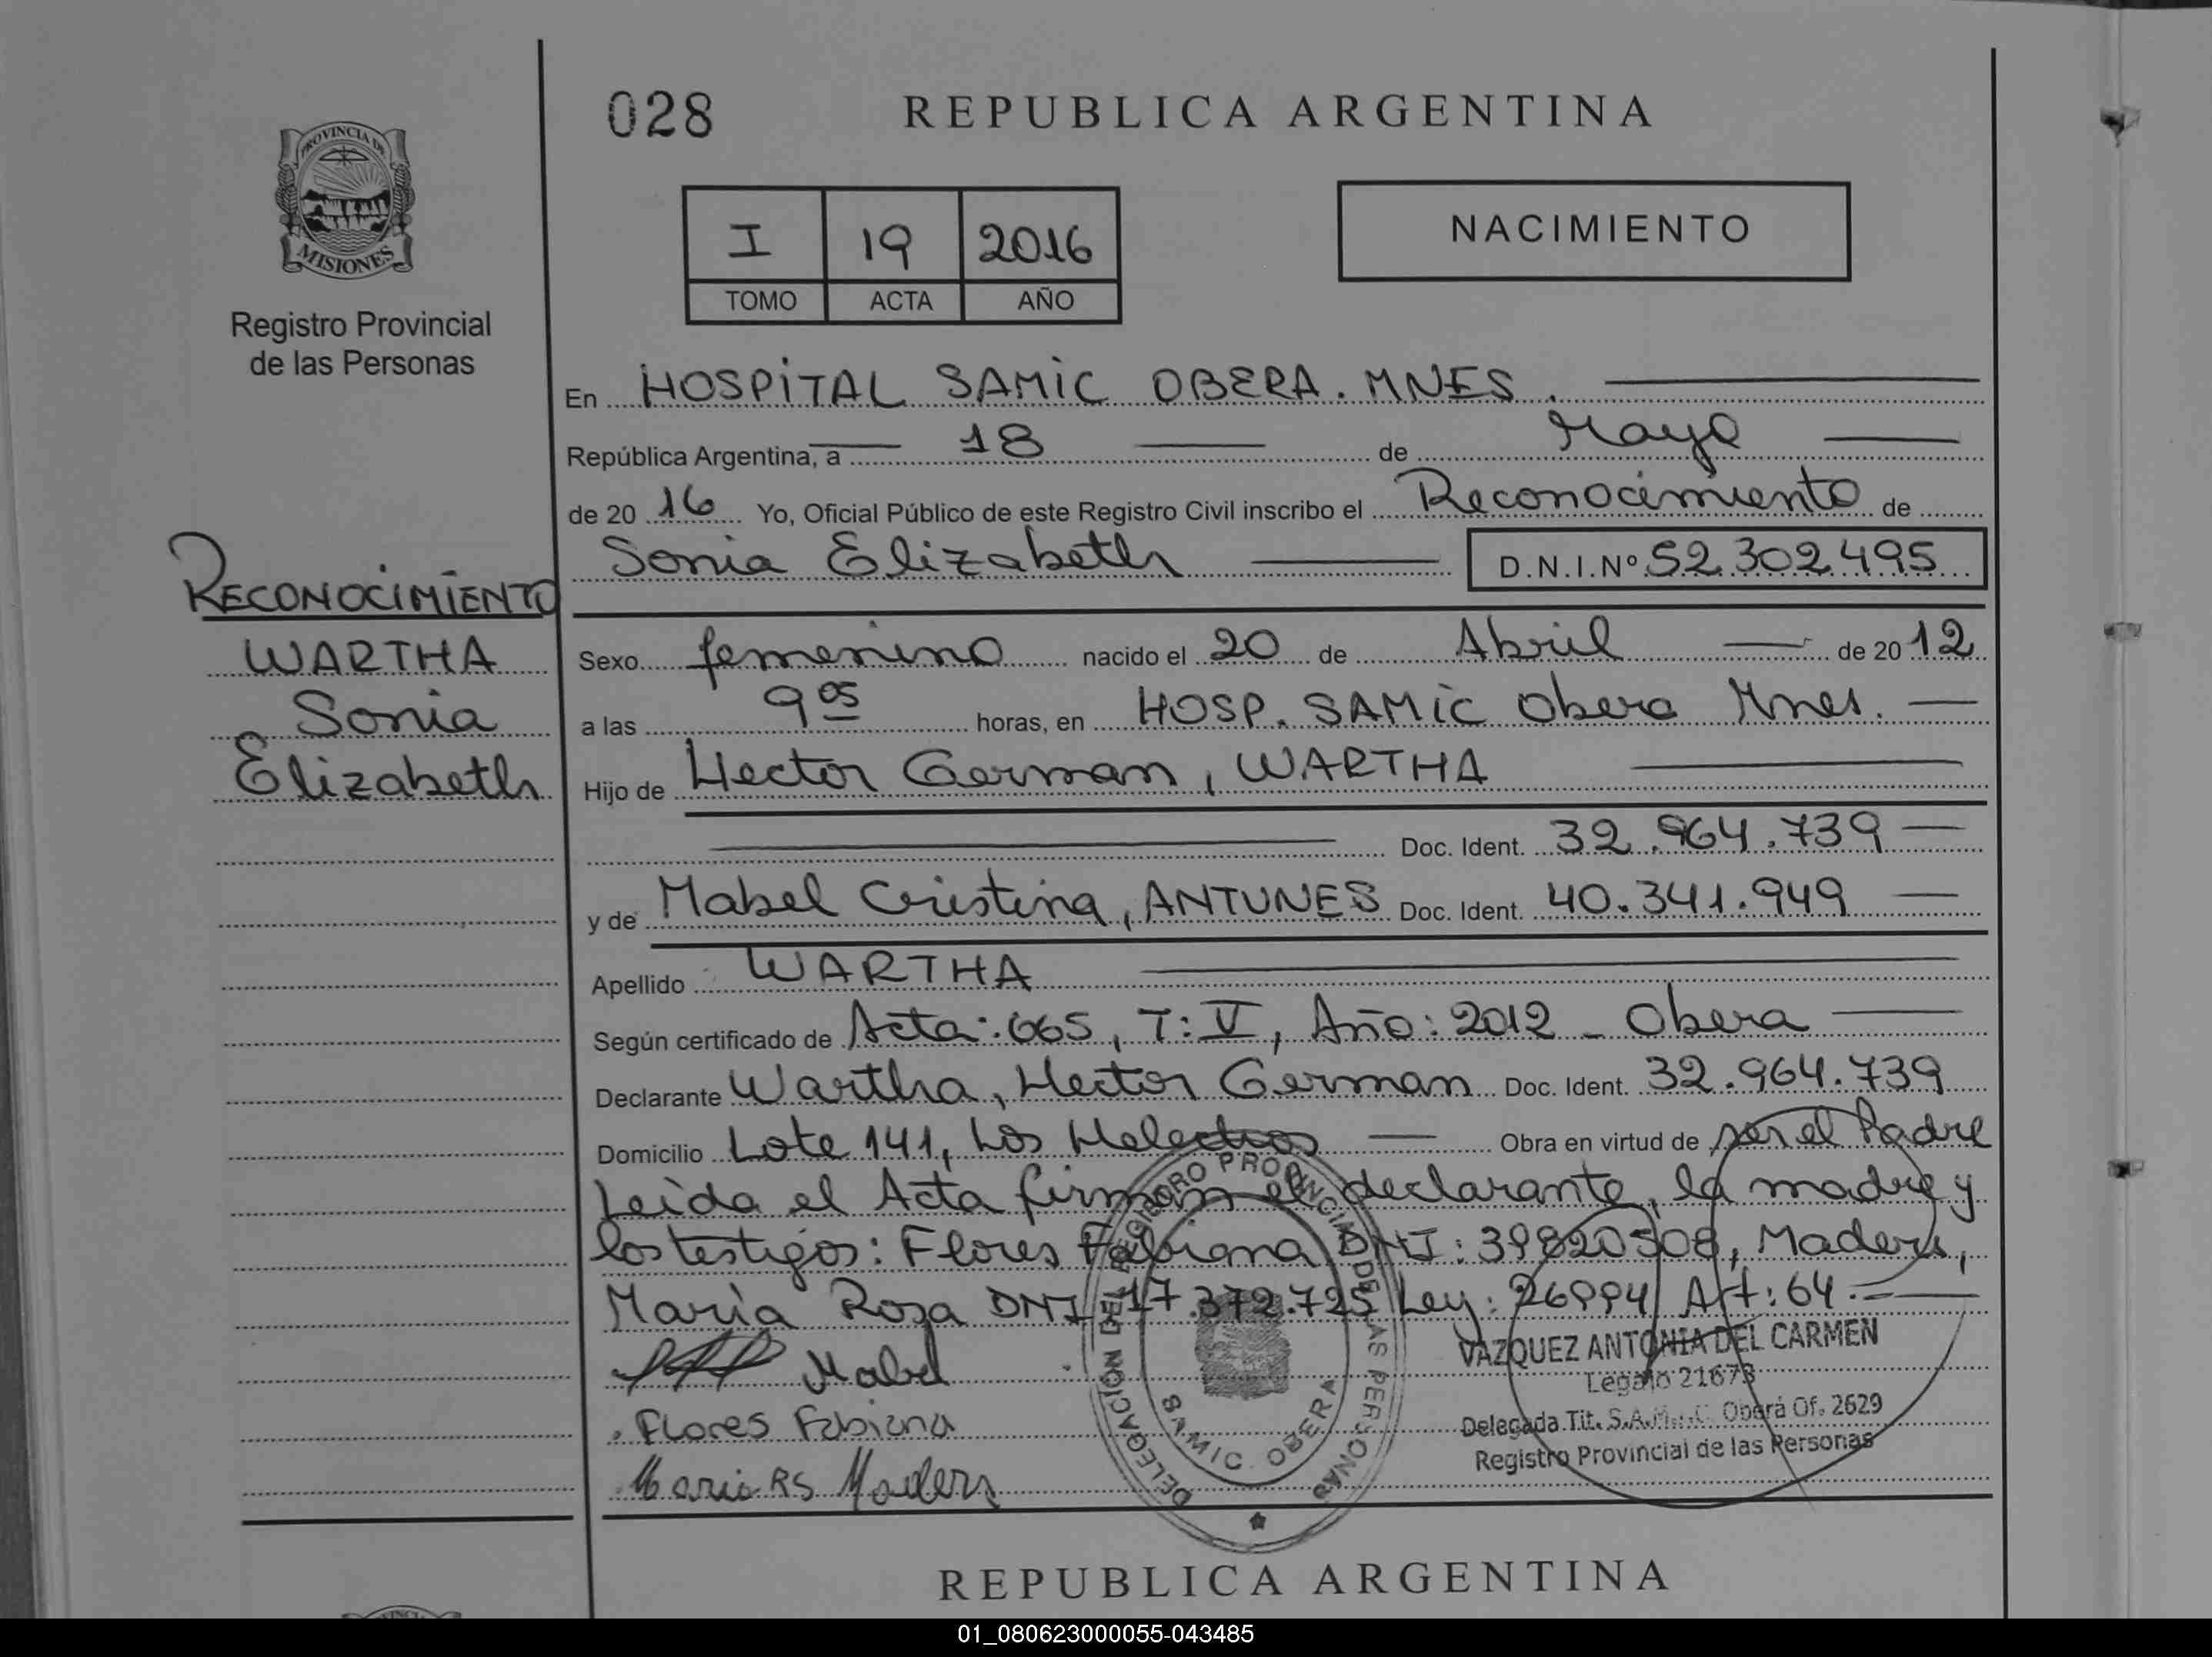 028
REPUBLICA ARGENTINA
PROVINCIA DE
MISIONES
Registro Provincial
de las Personas
I 19 2016
TOMO ACTA AÑO
NACIMIENTO
En HOSPITAL SAMIC OBERA. MNES.
República Argentina, a 18 de Mayo
de 20 16 Yo, Oficial Público de este Registro Civil inscribo el Reconocimiento de
Sonia Elizabeth D.N.I.Nº 52.302.495
RECONOCIMIENTO
WARTHA
Sonia
Elizabeth
Sexo femenino nacido el 20 de Abril de 20 12
a las 9 05 horas, en HOSP. SAMIC Obera Mnes.
Hijo de Hector German, WARTHA
Doc. Ident. 32.964.739
y de Mabel Cristina, ANTUNES Doc. Ident. 40.341.949
Apellido WARTHA
Según certificado de Acta: 665, T: V, Año: 2012 - Obera
Declarante Wartha, Hector German Doc. Ident. 32.964.739
Domicilio Lote 141, Los Helechos Obra en virtud de ser el Padre
Leida el Acta firman el declarante, la madre y
los testigos: Flores Fabiana DNI: 39820508, Maders,
Maria Rosa DNI 17.372.725 Ley: 26994 Art: 64.=
Mabel
Flores Fabiana
Maria RS Maders
DELEGACION DEL REGISTRO PROVINCIAL DE LAS PERSONAS
SAMIC OBERA
VAZQUEZ ANTONIA DEL CARMEN
Legajo 21673
Delegada Tit. S.A.M.I.C. Oberá Of. 2629
Registro Provincial de las Personas
REPUBLICA ARGENTINA
01_080623000055-043485